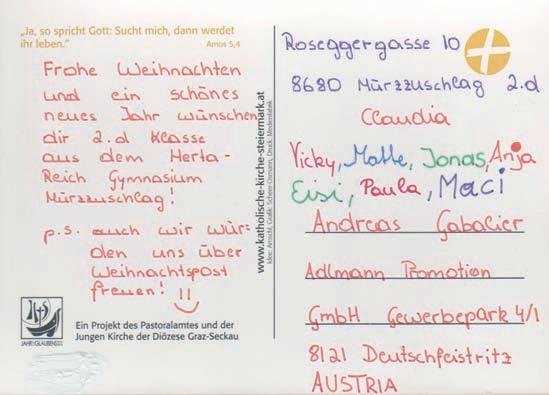 „Ja, so spricht Gott: Sucht mich, dann werdet
ihr leben.“
Amos 5,4
Frohe Weihnachten
und ein schönes
neues Jahr wünschen
dir 2.d Klasse
aus dem Herta-
Reich Gymnasium
Mürzzuschlag!
p.s. auch wir wür-
den uns über
Weihnachtspost
freuen!
JAHR DES GLAUBENS
Ein Projekt des Pastoralamtes und der
Jungen Kirche der Diözese Graz-Seckau
www.katholische-kirche-steiermark.at
Roseggergasse 10
8680 Mürzzuschlag 2.d
Claudia
Vicky, Malte, Jonas, Anja
Eisi, Paula, Maci
Andreas Gabalier
Adlmann Promotion
GmbH Gewerbepark 4/1
8121 Deutschfeistritz
AUSTRIA